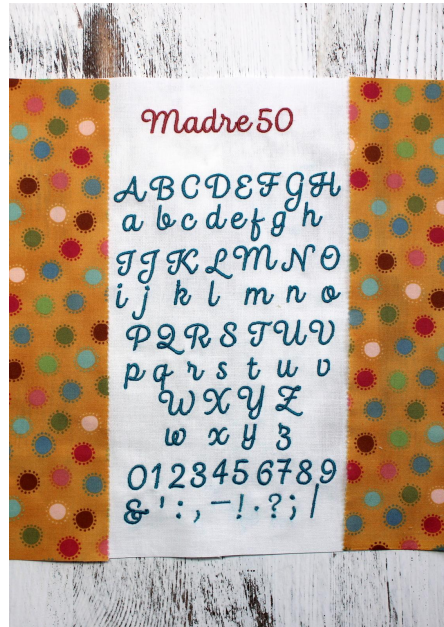 Madre 50
A B C D E F G H
a b c d e f g h
I J K L M N O
i j k l m n o
P Q R S T U V
p q r s t u v
W X Y Z
w x y z
0 1 2 3 4 5 6 7 8 9
& ' : , - ! . ? ; /